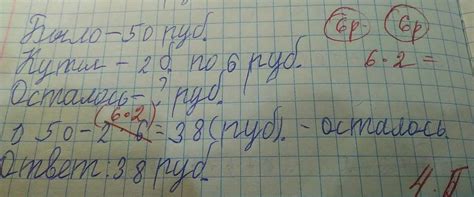 Было – 50 руб. 6р. 6р
Купил – 2 б. по 6 руб. 6·2=
Осталось – ? руб.
(6·2)
1) 50 – 2·6 = 38 (руб). – осталось.
Ответ: 38 руб.
4.